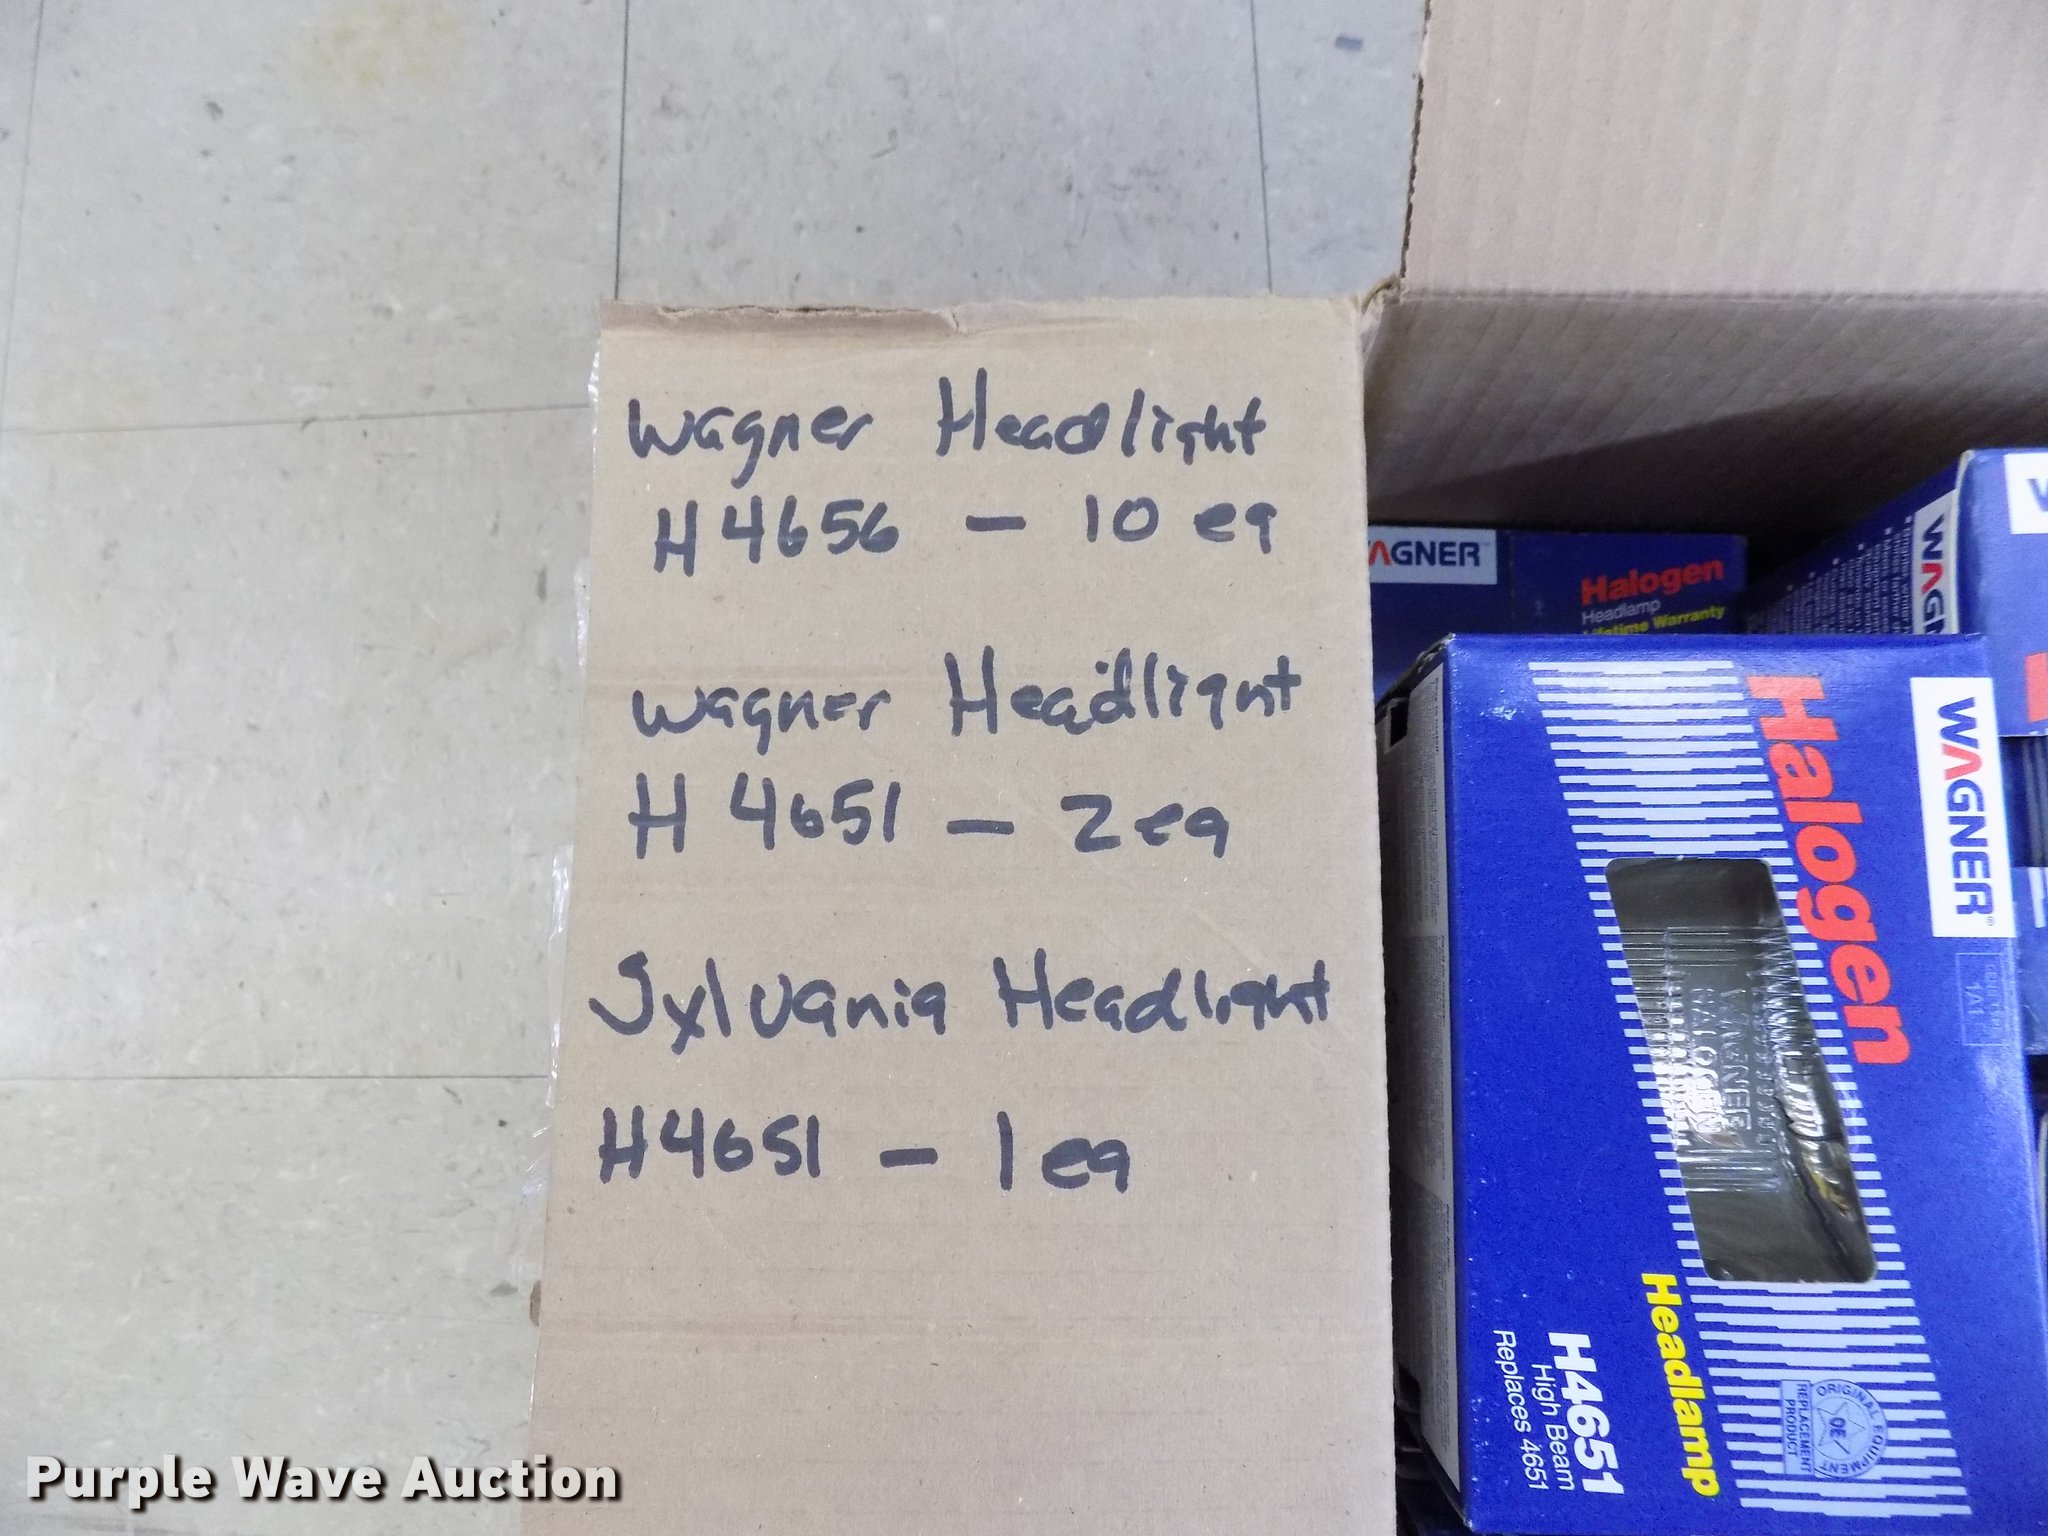 Wagner Headlight
H4656 - 10 ea
Wagner Headlight
H 4651 - 2 ea
Sylvania Headlight
H4651 - 1 ea
WAGNER
Halogen
Headlamp
Lifetime Warranty
WAGNER
Halogen
WAGNER
1A1
WAGNER
Headlamp
H4651
High Beam
Replaces 4651
ORIGINAL EQUIPMENT
OE
REPLACEMENT
PRODUCT
Purple Wave Auction